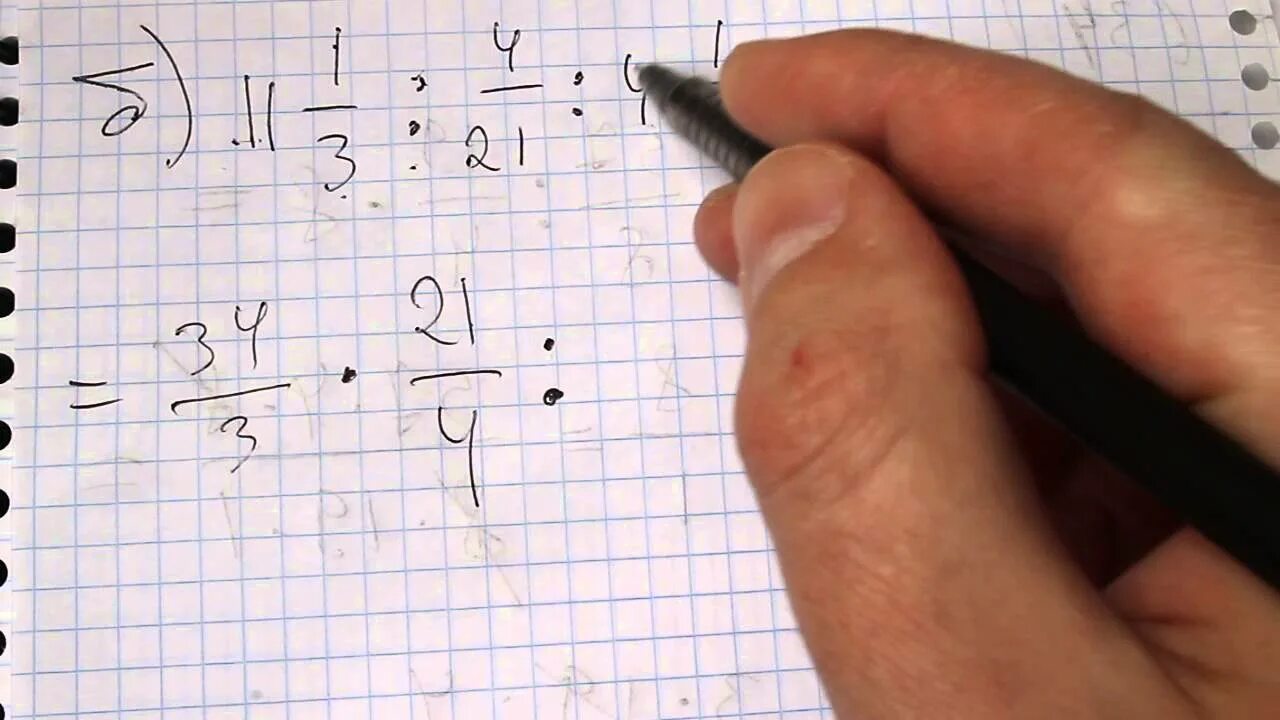 б) 11 1/3 : 4/21 : 4 1
= 34/3 · 21/4 :